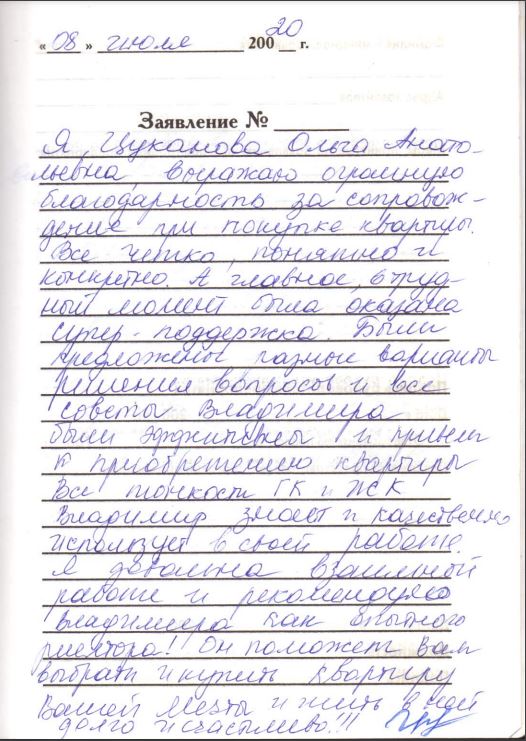 « 08 » июля 2020 г.
Заявление № ______
Я, Цуканова Ольга Анато-
льевна, выражаю огромную
благодарность за сопровож-
дение при покупке квартиры.
Все четко, понятно и
конкретно. А главное, в труд-
ный момент была оказана
супер-поддержка. Были
предложены разные варианты
решения вопросов и все
советы Владимира
были эффективны и привели
к приобретению квартиры
Все тонкости ГК и ЖСК
Владимир знает и качественно
использует в своей работе.
Я довольна взаимной
работе и рекомендую
Владимира как опытного
риелтора! Он поможет Вам
выбрать и купить квартиру
Вашей Мечты и жить в ней
долго и счастливо!!!